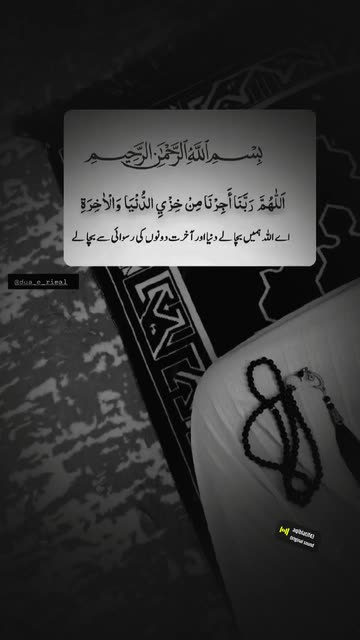 بِسْمِ اللّٰهِ الرَّحْمٰنِ الرَّحِيمِ
اَللّٰهُمَّ رَبَّنَا أَجِرْنَا مِنْ خِذْيِ الدُّنْيَا وَالْاٰخِرَةِ
اے اللہ ہمیں بچالے دنیا اور آخرت دونوں کی رسوائی سے بچالے
@dua_e_rimal
original sound